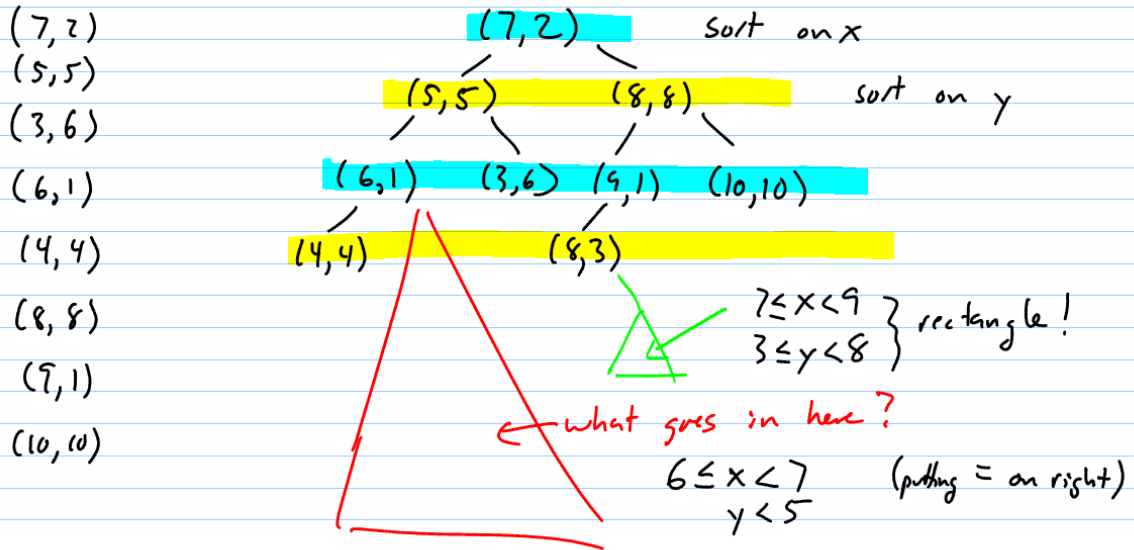 (7,2)
(5,5)
(3,6)
(6,1)
(4,4)
(8,8)
(9,1)
(10,10)
(7,2) sort on x
(5,5) (8,8) sort on y
(6,1) (3,6) (9,1) (10,10)
(4,4) (8,3)
7≤x<9
3≤y<8 } rectangle!
what goes in here?
6≤x<7 (putting = on right)
y<5